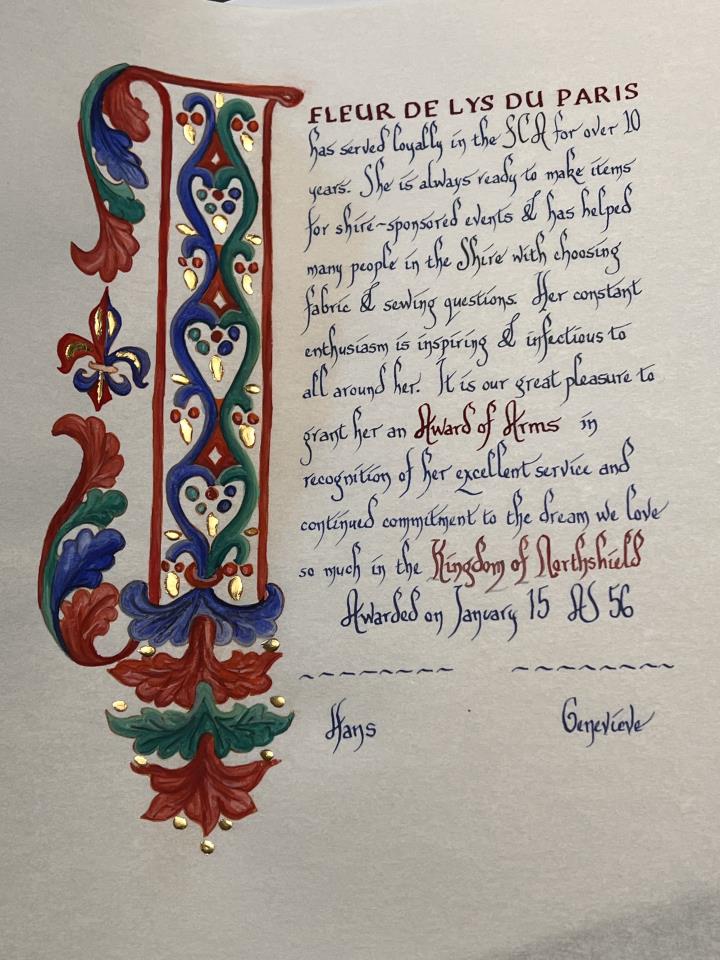 FLEUR DE LYS DU PARIS
has served loyally in the SCA for over 10
years. She is always ready to make items
for shire-sponsored events & has helped
many people in the Shire with choosing
fabric & sewing questions. Her constant
enthusiasm is inspiring & infectious to
all around her. It is our great pleasure to
grant her an Award of Arms in
recognition of her excellent service and
continued commitment to the dream we love
so much in the Kingdom of Northshield
Awarded on January 15 AS 56
Hans Genevieve